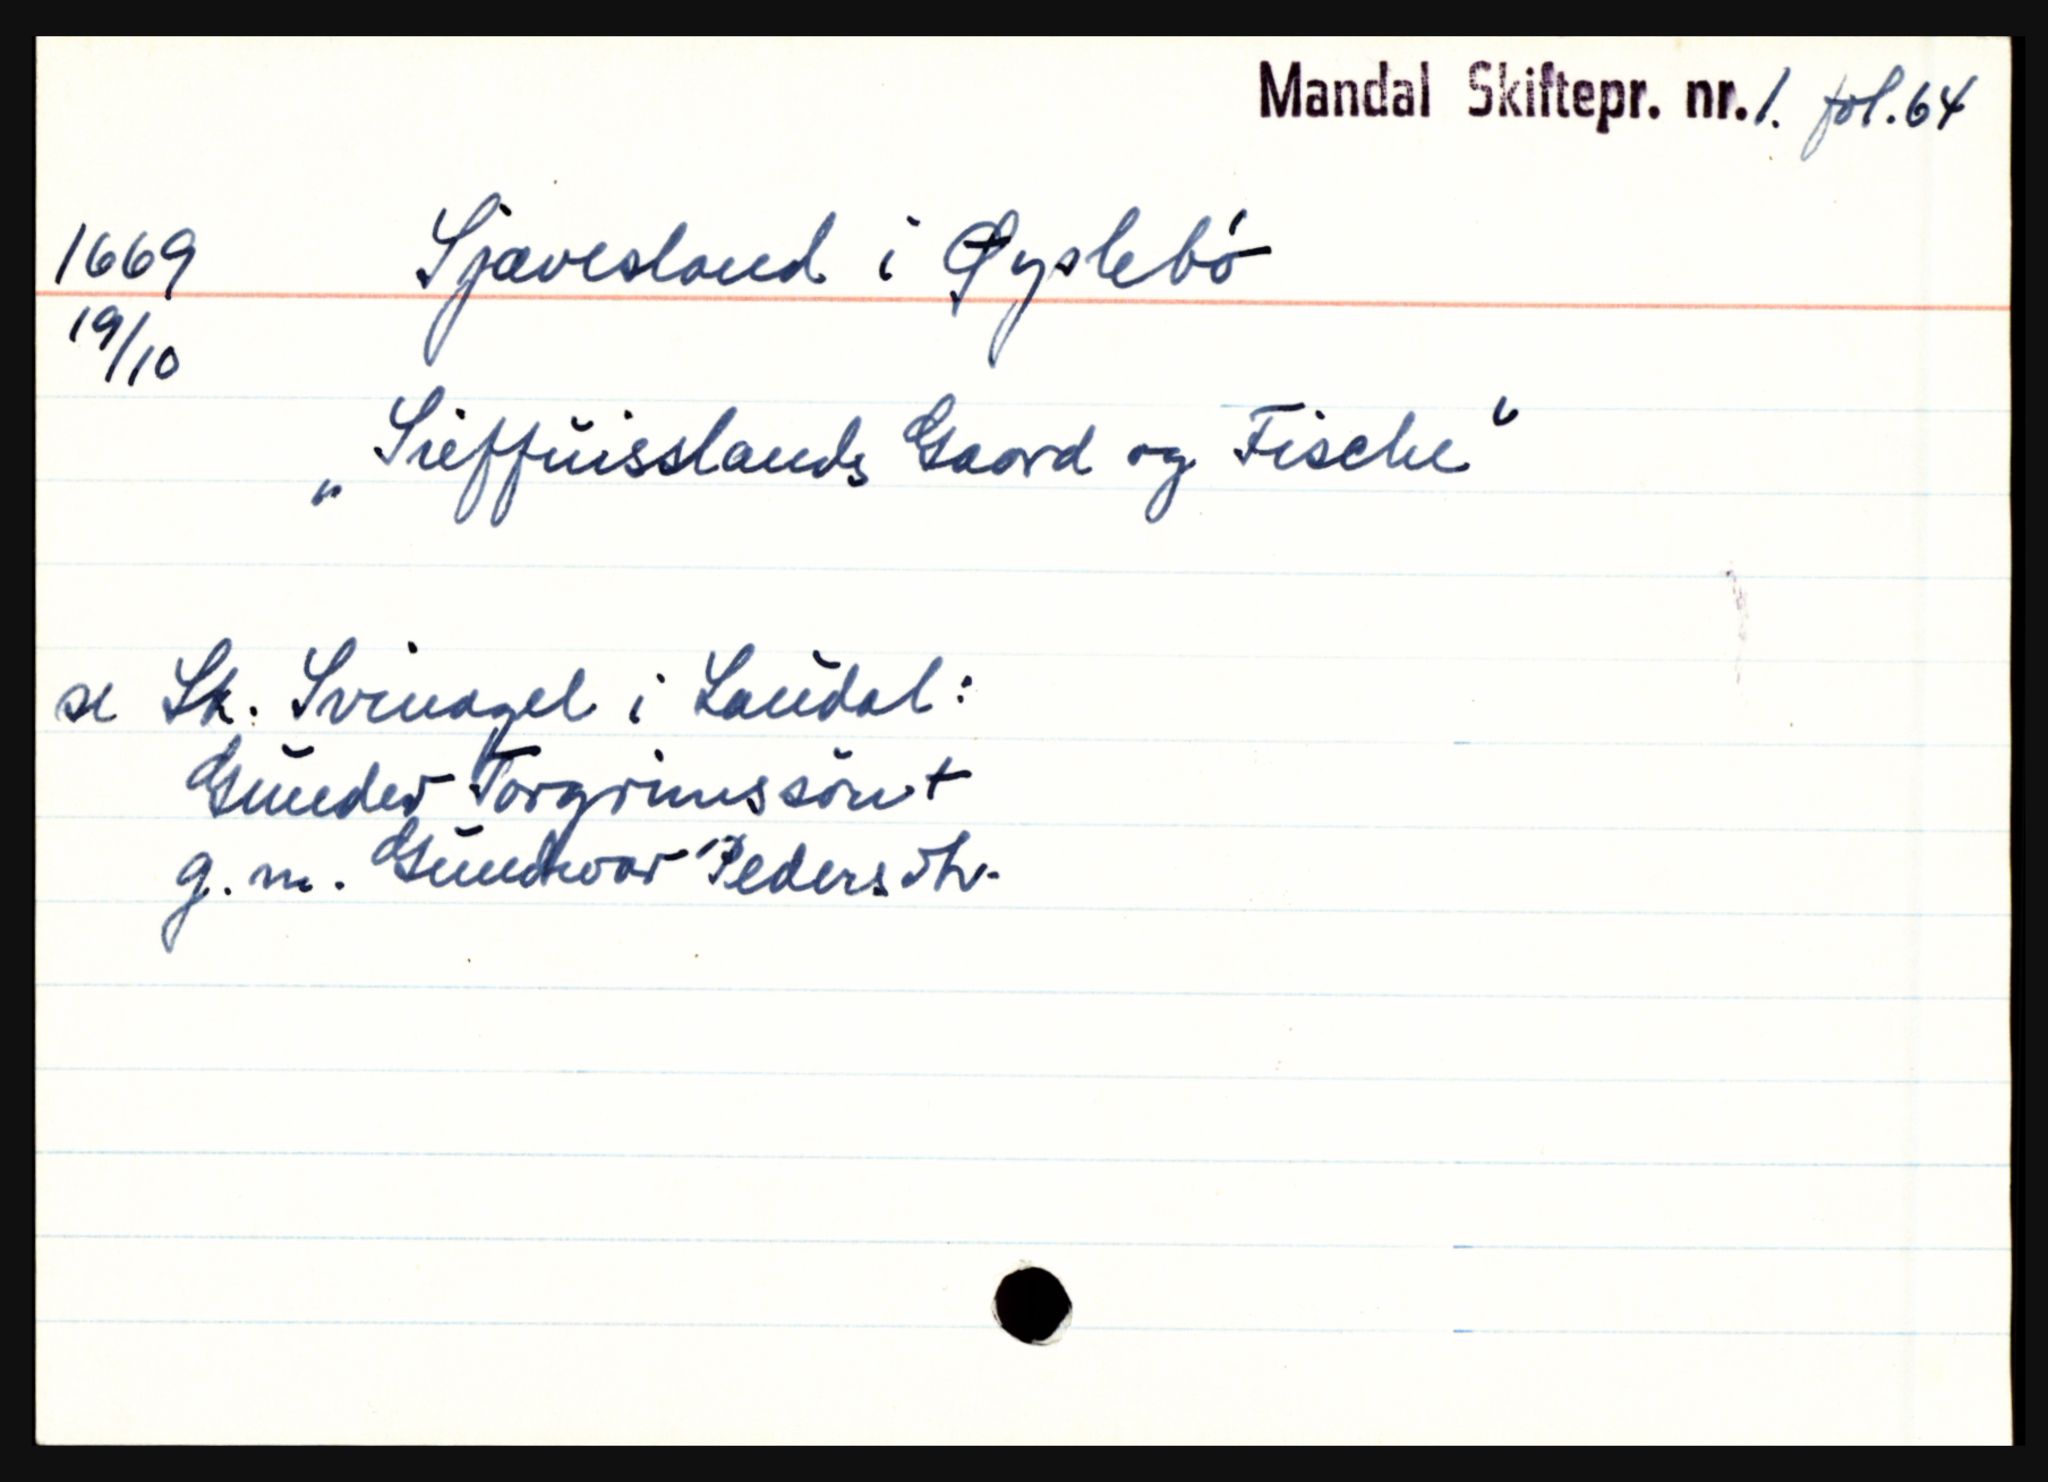 Mandal Skiftepr. nr. 1. fol. 64
1669 Sjævesland i Øyslebö
19/10
„Sieffuisslands Gaord og Fische“
se Sk. Svinagel i Laudal:
Gunder Torgrimssön +
g. m. Gundvor Pedersdtr.